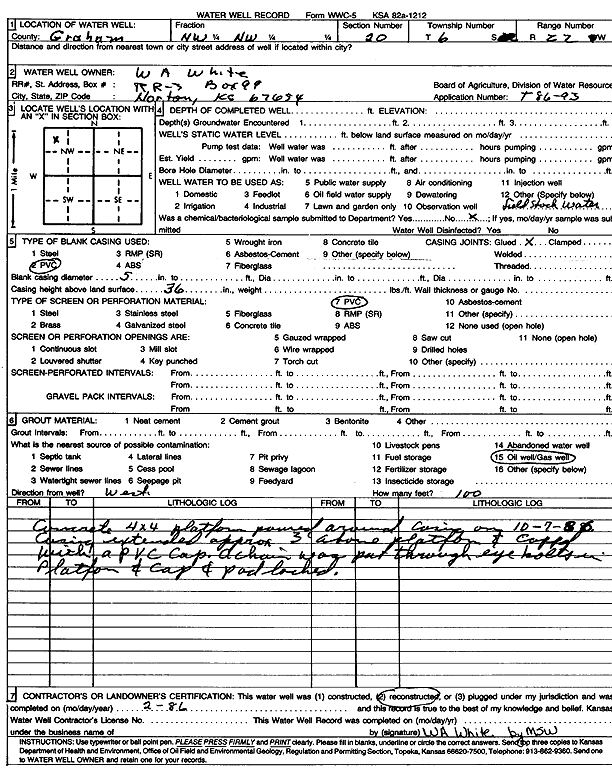 WATER WELL RECORD Form WWC-5 KSA 82a-1212
1 LOCATION OF WATER WELL: Fraction Section Number Township Number Range Number
County: Graham NW ¼ NW ¼ ¼ 20 T 6 S R 22 W
Distance and direction from nearest town or city street address of well if located within city?
2 WATER WELL OWNER: W A White
RR#, St. Address, Box #: RR-3 Box 99 Board of Agriculture, Division of Water Resource
City, State, ZIP Code : Norton, KS 67654 Application Number: T86-93
3 LOCATE WELL'S LOCATION WITH AN "X" IN SECTION BOX:
N
X
NW NE
W E
SW SE
1 Mile
4 DEPTH OF COMPLETED WELL ft. ELEVATION:
Depth(s) Groundwater Encountered 1. ft. 2. ft. 3. ft.
WELL'S STATIC WATER LEVEL ft. below land surface measured on mo/day/yr
Pump test data: Well water was ft. after hours pumping gpm
Est. Yield gpm: Well water was ft. after hours pumping gpm
Bore Hole Diameter in. to ft., and in. to ft.
WELL WATER TO BE USED AS: 5 Public water supply 8 Air conditioning 11 Injection well
1 Domestic 3 Feedlot 6 Oil field water supply 9 Dewatering 12 Other (Specify below)
2 Irrigation 4 Industrial 7 Lawn and garden only 10 Observation well Stock Water
Was a chemical/bacteriological sample submitted to Department? Yes No X ; If yes, mo/day/yr sample was sub
mitted Water Well Disinfected? Yes No
5 TYPE OF BLANK CASING USED: 5 Wrought iron 8 Concrete tile CASING JOINTS: Glued X Clamped
1 Steel 3 RMP (SR) 6 Asbestos-Cement 9 Other (specify below) Welded
2 PVC 4 ABS 7 Fiberglass Threaded
Blank casing diameter 5 in. to ft., Dia in. to ft., Dia in. to ft.
Casing height above land surface 36 in., weight lbs./ft. Wall thickness or gauge No.
TYPE OF SCREEN OR PERFORATION MATERIAL: 7 PVC 10 Asbestos-cement
1 Steel 3 Stainless steel 5 Fiberglass 8 RMP (SR) 11 Other (specify)
2 Brass 4 Galvanized steel 6 Concrete tile 9 ABS 12 None used (open hole)
SCREEN OR PERFORATION OPENINGS ARE: 5 Gauzed wrapped 8 Saw cut 11 None (open hole)
1 Continuous slot 3 Mill slot 6 Wire wrapped 9 Drilled holes
2 Louvered shutter 4 Key punched 7 Torch cut 10 Other (specify)
SCREEN-PERFORATED INTERVALS: From ft. to ft., From ft. to ft.
From ft. to ft., From ft. to ft.
GRAVEL PACK INTERVALS: From ft. to ft., From ft. to ft.
From ft. to ft., From ft. to ft.
6 GROUT MATERIAL: 1 Neat cement 2 Cement grout 3 Bentonite 4 Other
Grout Intervals: From ft. to ft., From ft. to ft., From ft. to ft.
What is the nearest source of possible contamination: 10 Livestock pens 14 Abandoned water well
1 Septic tank 4 Lateral lines 7 Pit privy 11 Fuel storage 15 Oil well/Gas well
2 Sewer lines 5 Cess pool 8 Sewage lagoon 12 Fertilizer storage 16 Other (specify below)
3 Watertight sewer lines 6 Seepage pit 9 Feedyard 13 Insecticide storage
Direction from well? West How many feet? 100
FROM TO LITHOLOGIC LOG FROM TO LITHOLOGIC LOG
Concrete 4x4 platform poured around casing on 10-7-86.
Casing extended approx 3' above platform & capped
with a PVC cap. A chain was put through eye bolts in
Platform & Cap & pad locked.
7 CONTRACTOR'S OR LANDOWNER'S CERTIFICATION: This water well was (1) constructed, (2) reconstructed, or (3) plugged under my jurisdiction and was
completed on (mo/day/year) 2-86 and this record is true to the best of my knowledge and belief. Kansas
Water Well Contractor's License No. This Water Well Record was completed on (mo/day/yr)
under the business name of by (signature) WA White by MSW
INSTRUCTIONS: Use typewriter or ball point pen. PLEASE PRESS FIRMLY and PRINT clearly. Please fill in blanks, underline or circle the correct answers. Send top three copies to Kansas
Department of Health and Environment, Office of Oil Field and Environmental Geology, Regulation and Permitting Section, Topeka, Kansas 66620-7500, Telephone: 913-862-9360. Send one
to WATER WELL OWNER and retain one for your records.